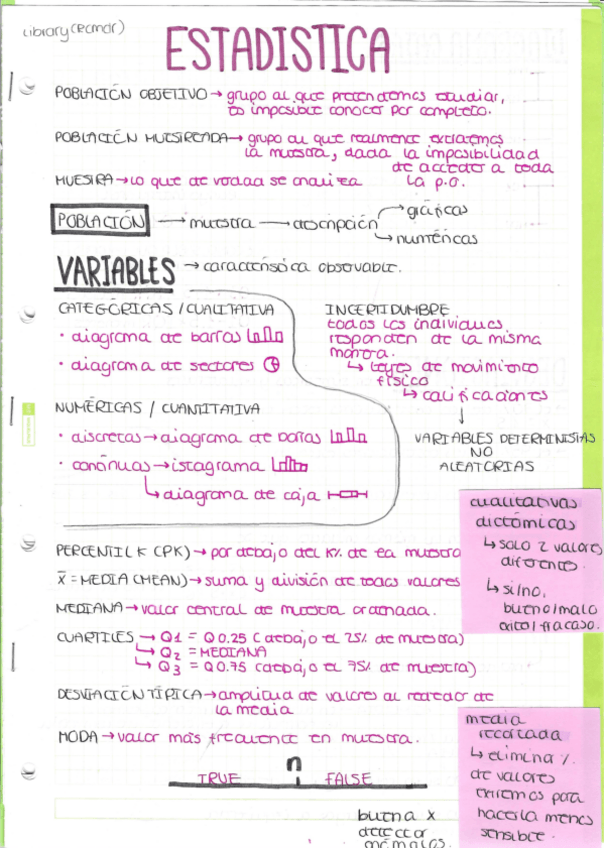 Library(Rcmdr)
ESTADISTICA
POBLACIÓN OBJETIVO → grupo al que pretendemos estudiar,
es imposible conocer por completo.
POBLACIÓN MUESTREADA → grupo al que realmente extraemos
la muestra, dada la imposibilidad
de acceder a toda
la p.o.
MUESTRA → lo que de verdad se analiza
POBLACIÓN → muestra → descripción → gráficas
→ numéricas
VARIABLES → característica observable.
CATEGÓRICAS / CUALITATIVA
· diagrama de barras
· diagrama de sectores
NUMÉRICAS / CUANTITATIVA
· discretas → diagrama de barras
· continuas → istagrama
↳ diagrama de caja
INCERTIDUMBRE
todos los individuos
responden de la misma
manera.
↳ leyes de movimiento
físico
↳ calificaciones
↓
VARIABLES DETERMINISTAS
NO
ALEATORIAS
cualitativas
dictómicas
↳ solo 2 valores
diferente.
↳ si/no,
bueno/malo
exito/fracaso.
PERCENTIL K (PK) → por debajo del K% de la muestra
x̄ = MEDIA (MEAN) → suma y división de todos valores
MEDIANA → valor central de muestra ordenada.
CUARTILES → Q1 = Q0.25 (debajo el 25% de muestra)
↳ Q2 = MEDIANA
↳ Q3 = Q0.75 (debajo el 75% de muestra)
DESVIACIÓN TÍPICA → amplitud de valores al rededor de
la media
MODA → valor más frecuente en muestra.
n
TRUE FALSE
media
recortada
↳ elimina %
de valores
extremos para
hacerla menos
sensible.
buena x
detectar
anómalos.